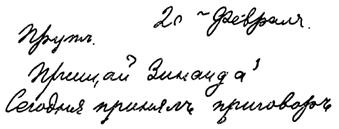 2го Февраля.
Прутъ.
Прощай Зинаида!
Сегодня принялъ приговоръ